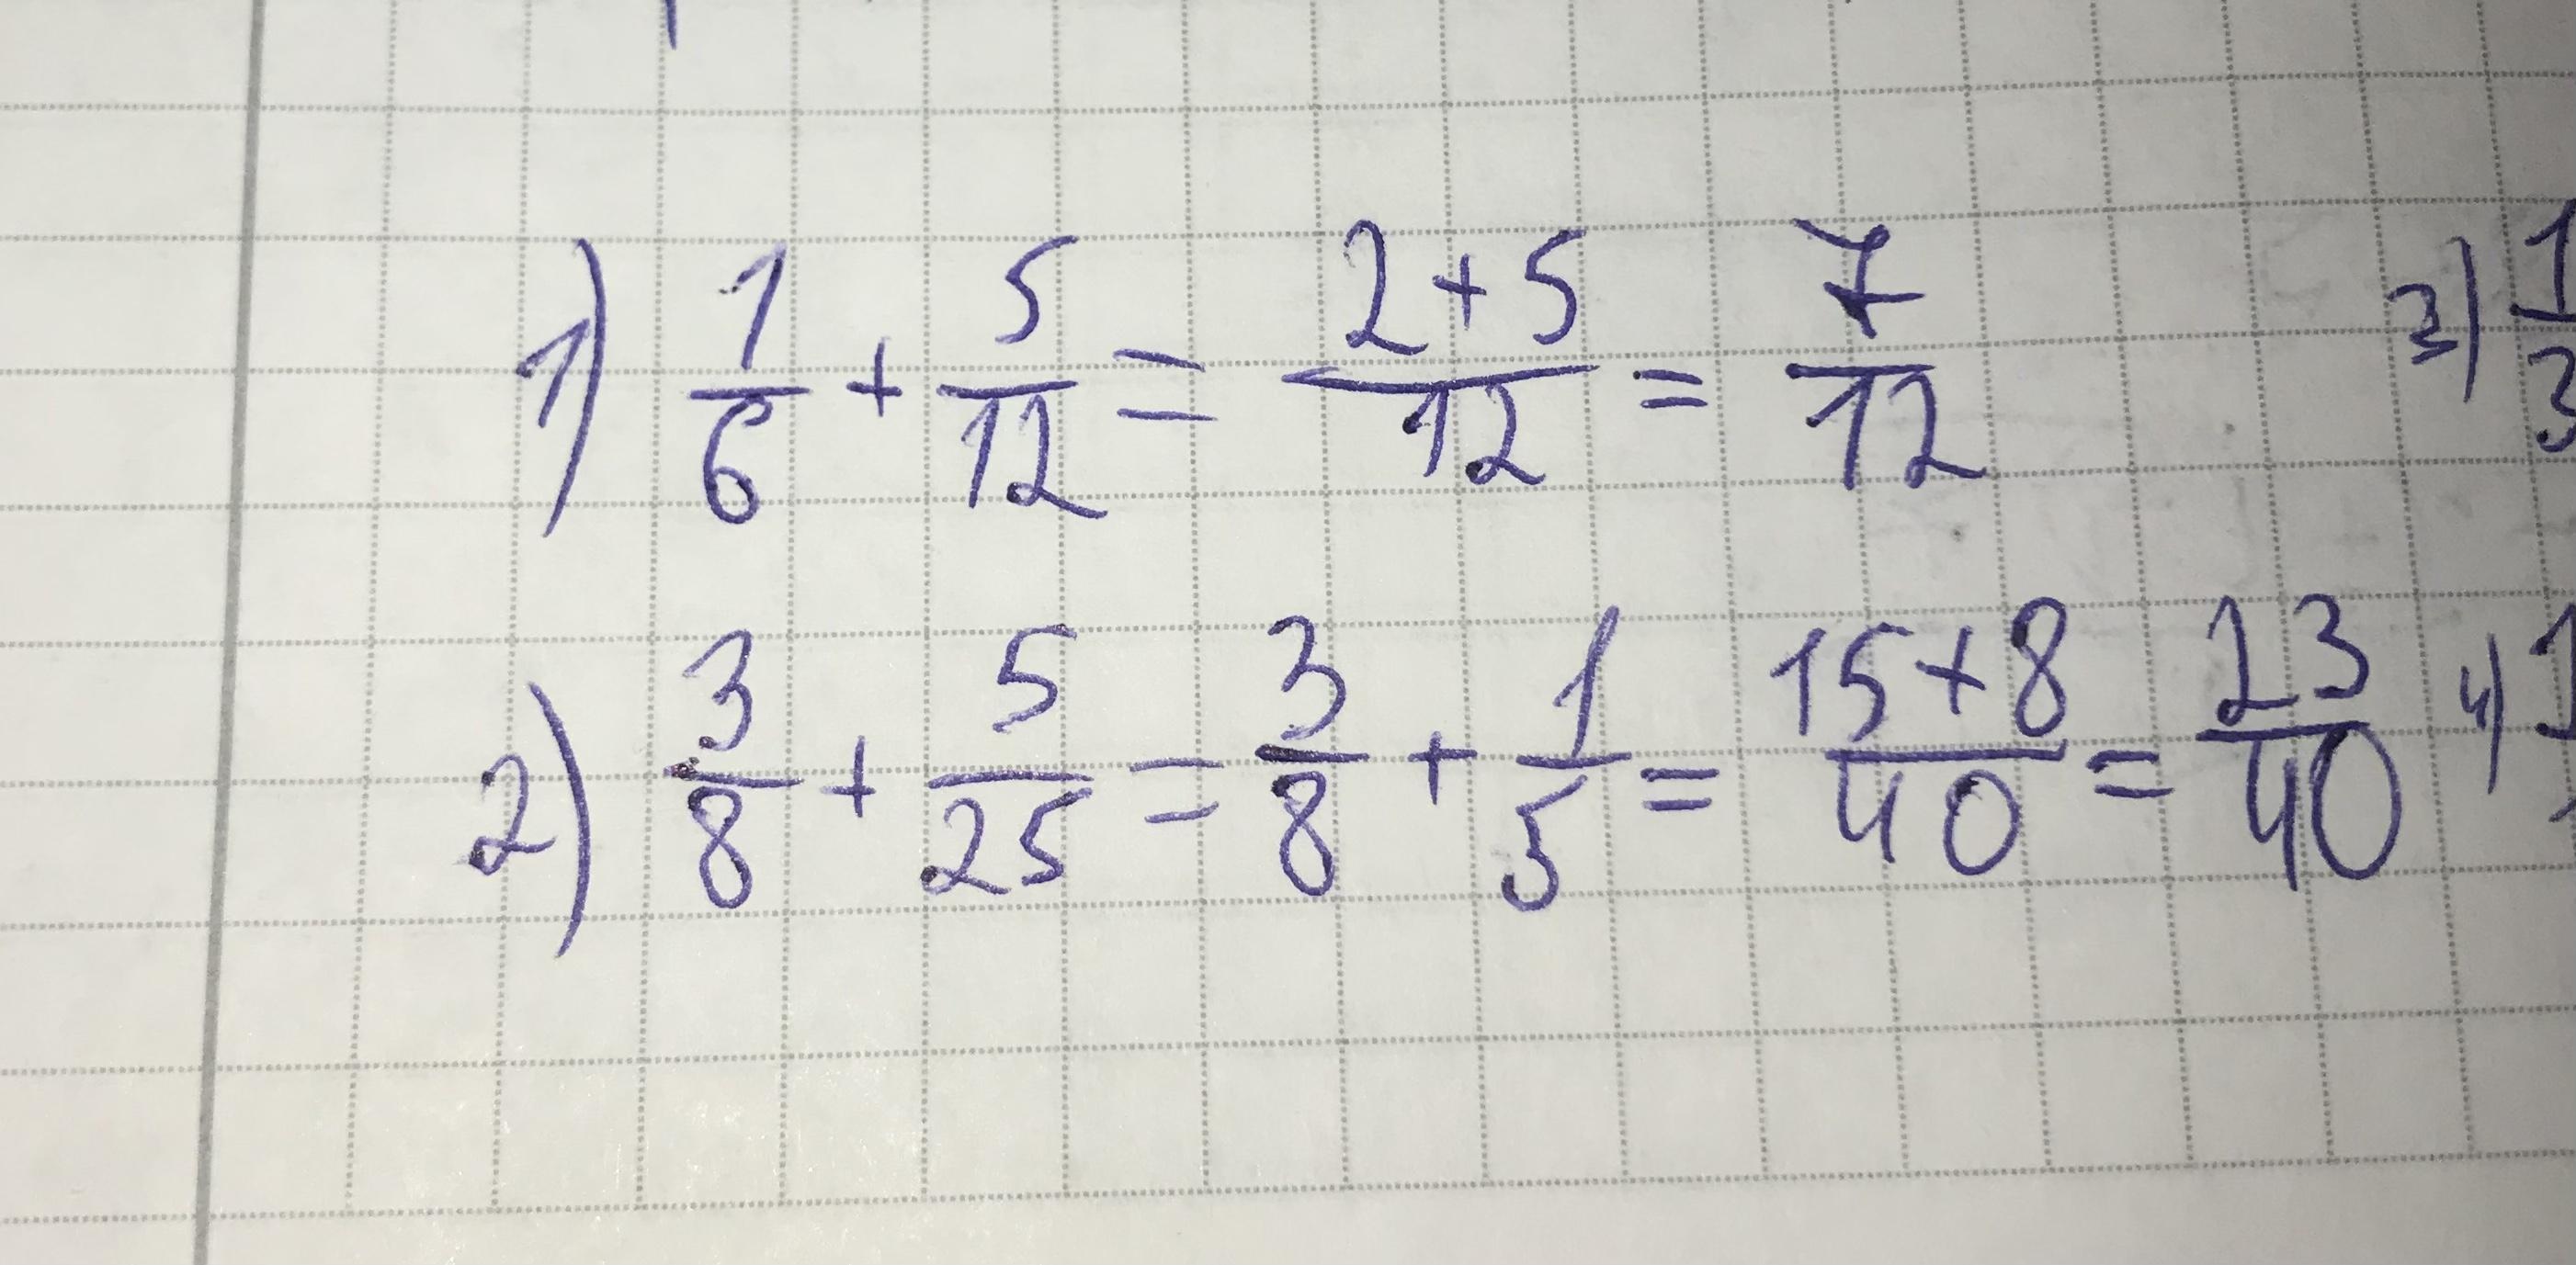 1) 1/6 + 5/12 = 2+5/12 = 7/12
3) 1/3
2) 3/8 + 5/25 = 3/8 + 1/5 = 15+8/40 = 23/40
4) 1